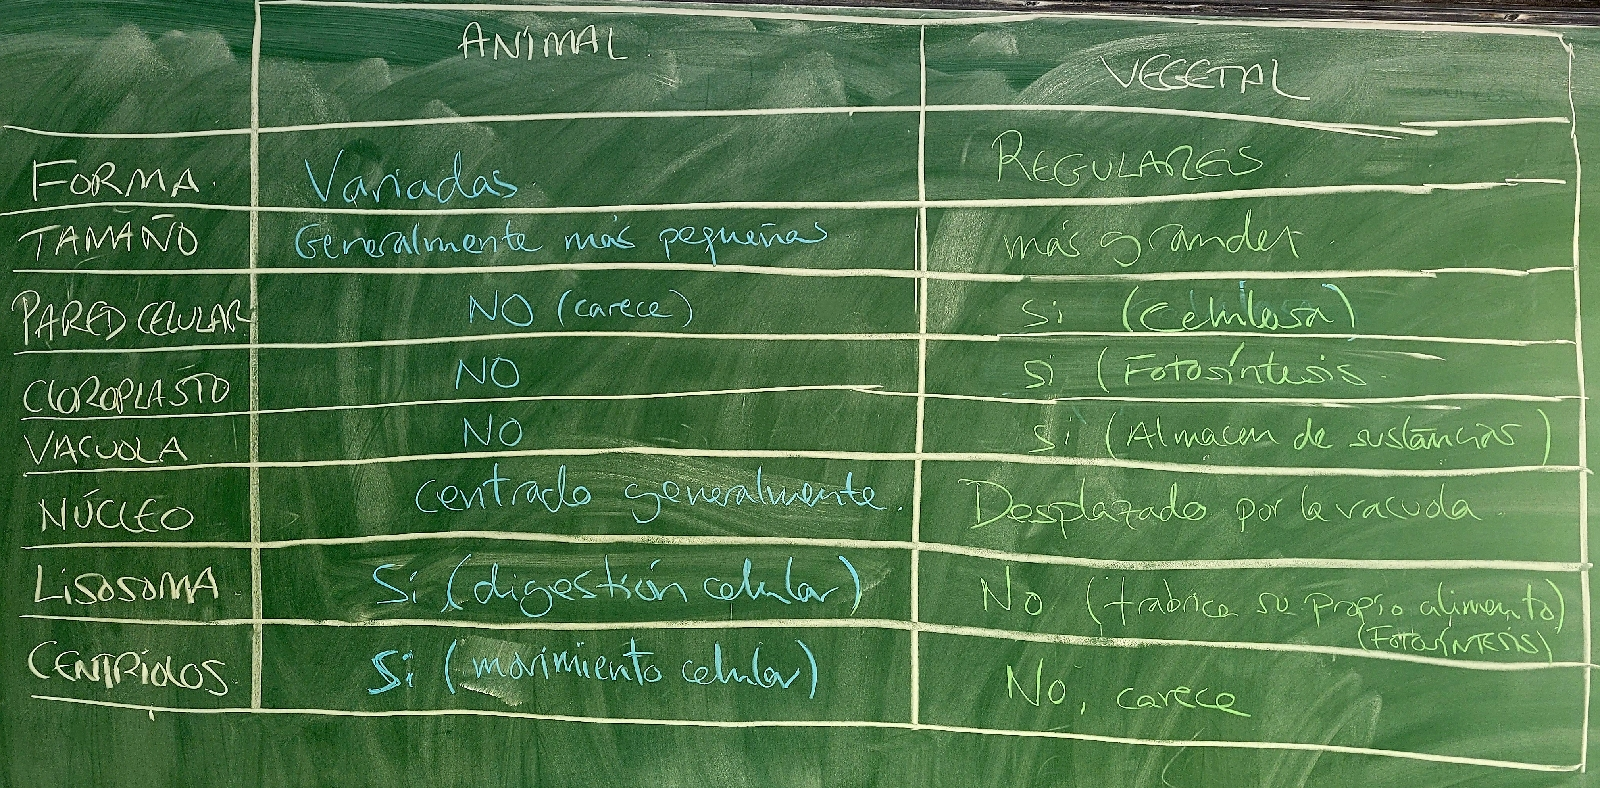 ANIMAL
VEGETAL
FORMA. Variadas REGULARES
TAMAÑO Generalmente más pequeñas más grandes.
PARED CELULAR NO (carece) Si (Celulosa)
CLOROPLASTO NO Si (Fotosíntesis.
VACUOLA NO Si (Almacen de sustancias)
NÚCLEO centrado generalmente. Desplazado por la vacuola.
LISOSOMA Si (digestión celular) No (fabrica su propio alimento)
(FOTOSÍNTESIS)
CENTRIOLOS Si (movimiento celular) No, carece